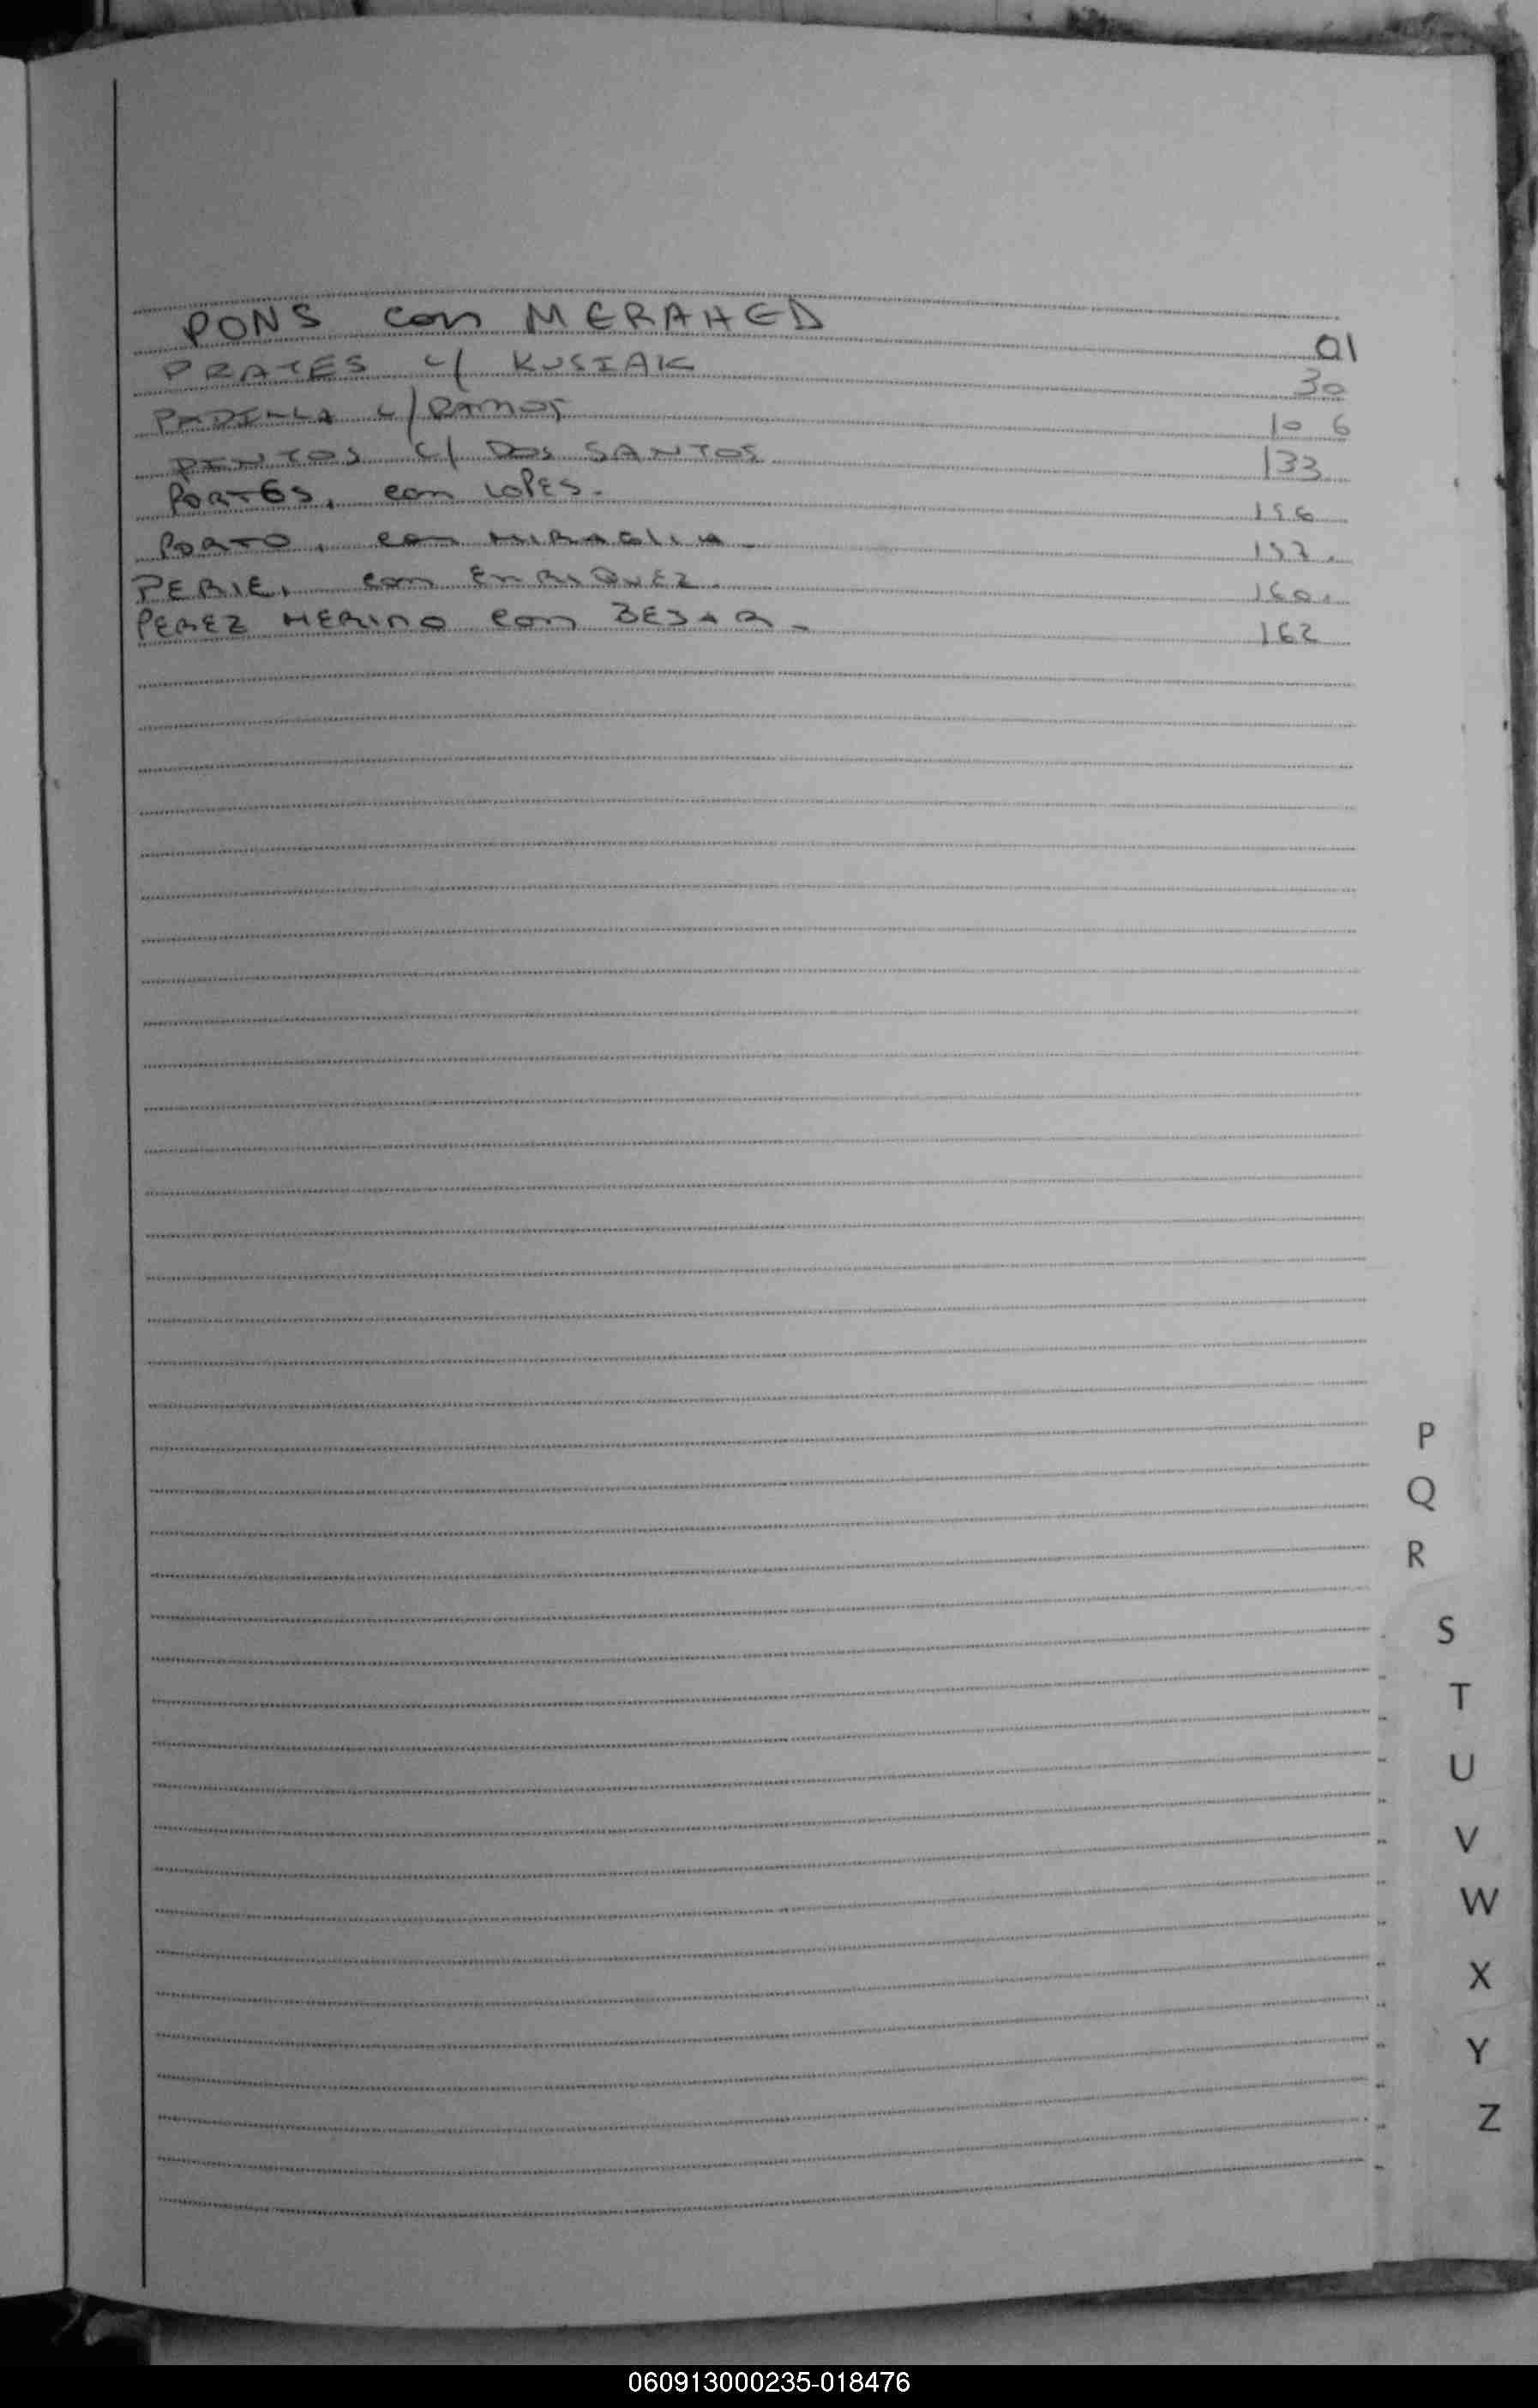 PONS con MERAHED 01
PRATES c/ KUSIAK 30
PADILLA c/ RAMOS 106
PINTOS c/ DOS SANTOS 133
PORTES, con LOPES. 156
PORTO, con MIRAGLIA. 157.
PERIE, con ENRIQUEZ. 160.
PEREZ MERINO con BEJAR. 162
P
Q
R
S
T
U
V
W
X
Y
Z
060913000235-018476